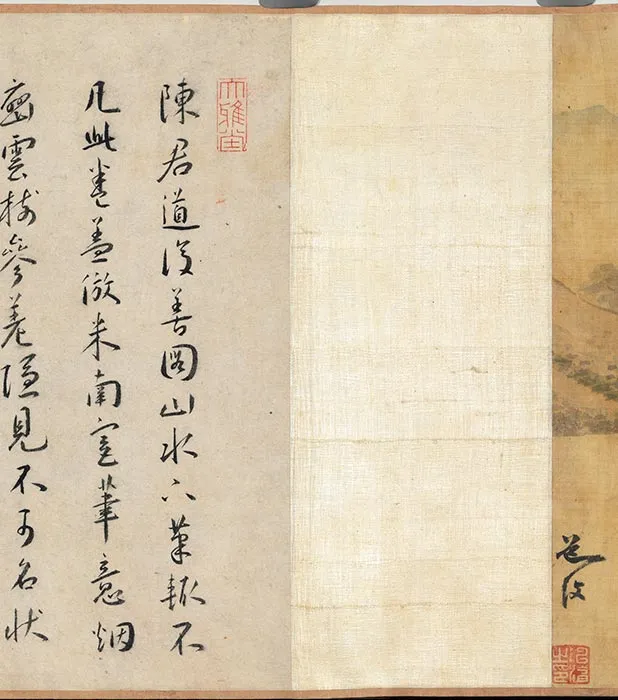 道復
大雅堂
陳君道復善圖山水下筆輒不
凡此卷蓋倣米南宮筆意烟
巒雲樹參差隱見不可名状